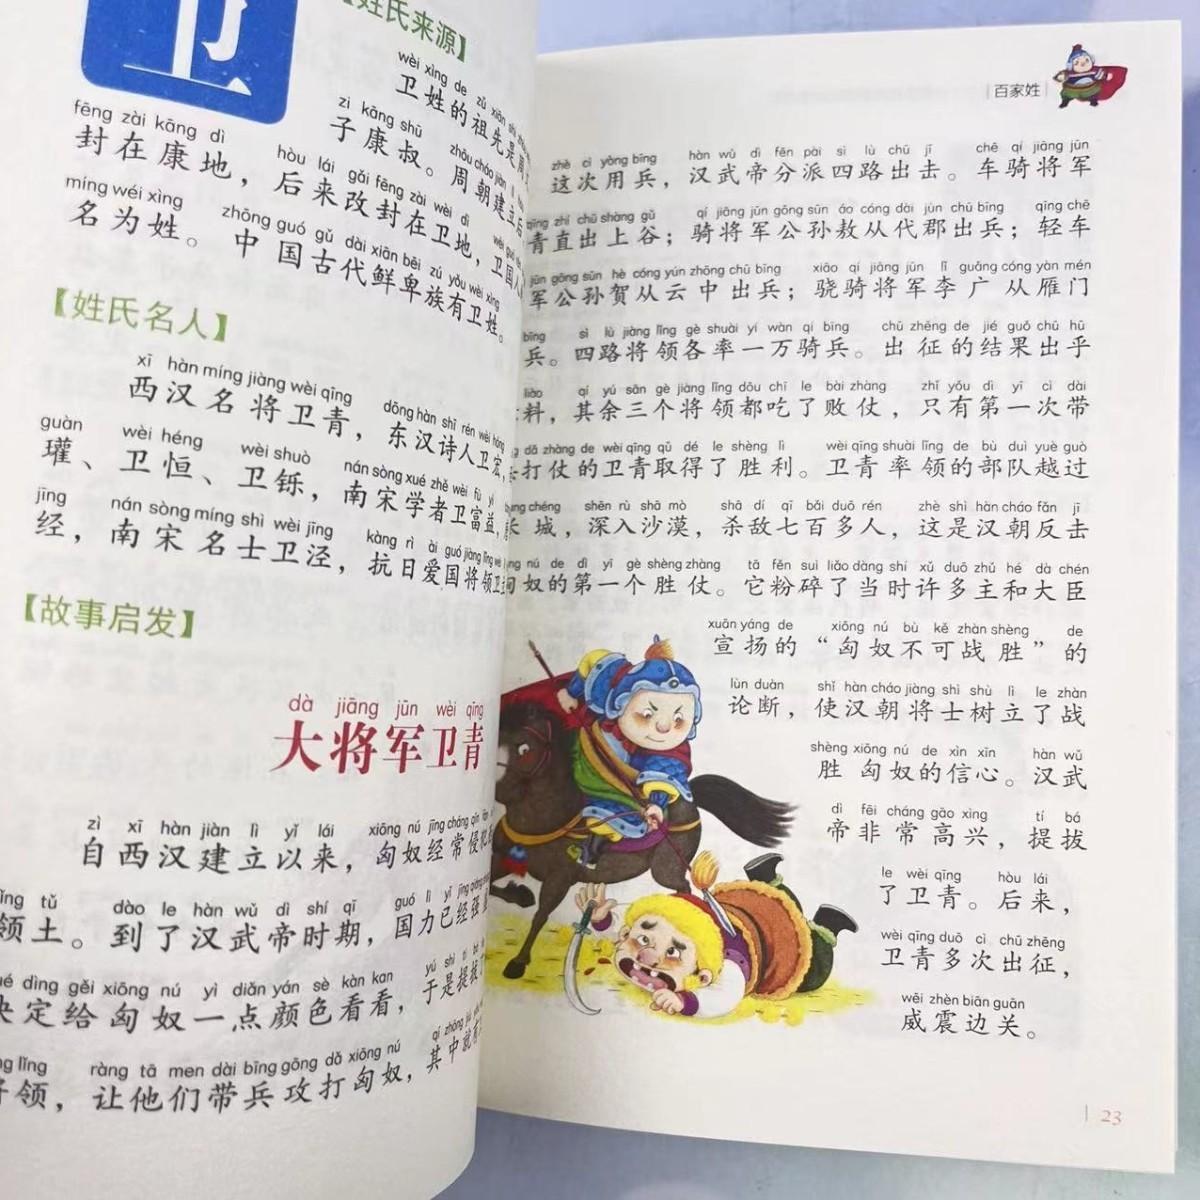 卫
【姓氏来源】
wèi xìng de zǔ xiān shì
卫姓的祖先是周
zi kāng shū zhōu cháo jiàn lì
子康叔。周朝建立后
fēng zài kāng dì hòu lái gǎi fēng zài wèi dì wèi guó
封在康地，后来改封在卫地，卫国人
míng wéi xìng zhōng guó gǔ dài xiān bēi zú yǒu wèi xìng
名为姓。中国古代鲜卑族有卫姓。
【姓氏名人】
xī hàn míng jiàng wèi qīng dōng hàn shī rén wèi hóng
西汉名将卫青，东汉诗人卫宏，
guàn wèi héng wèi shuò nán sòng xué zhě wèi fù yì
瓘、卫恒、卫铄，南宋学者卫富益，
jīng nán sòng míng shì wèi jīng kàng rì ài guó jiàng lǐng wèi
经，南宋名士卫泾，抗日爱国将领卫立
【故事启发】
dà jiāng jūn wèi qīng
大将军卫青
zì xī hàn jiàn lì yǐ lái xiōng nú jīng cháng qīn fàn
自西汉建立以来，匈奴经常侵犯
lǐng tǔ dào le hàn wǔ dì shí qī guó lì yǐ jīng qiáng
领土。到了汉武帝时期，国力已经强
jué dìng gěi xiōng nú yì diǎn yán sè kàn kan yú shì tí bá
决定给匈奴一点颜色看看，于是提拔了
lǐng ràng tā men dài bīng gōng dǎ xiōng nú qí zhōng jiù
将领，让他们带兵攻打匈奴，其中就有
百家姓
zhè cì yòng bīng hàn wǔ dì fēn pài sì lù chū jī chē qí jiāng jūn
这次用兵，汉武帝分派四路出击。车骑将军
qīng zhí chū shàng gǔ qí jiāng jūn gōng sūn áo cóng dài jùn chū bīng qīng chē
青直出上谷；骑将军公孙敖从代郡出兵；轻车
jūn gōng sūn hè cóng yún zhōng chū bīng xiāo qí jiāng jūn lǐ guǎng cóng yàn mén
军公孙贺从云中出兵；骁骑将军李广从雁门
bīng sì lù jiàng lǐng gè shuài yí wàn qí bīng chū zhēng de jié guǒ chū hū
兵。四路将领各率一万骑兵。出征的结果出乎
liào qí yú sān gè jiàng lǐng dōu chī le bài zhàng zhǐ yǒu dì yī cì dài
料，其余三个将领都吃了败仗，只有第一次带
dǎ zhàng de wèi qīng qǔ dé le shèng lì wèi qīng shuài lǐng de bù duì yuè guò
打仗的卫青取得了胜利。卫青率领的部队越过
chéng shēn rù shā mò shā dí qī bǎi duō rén zhè shì hàn cháo fǎn jī
长城，深入沙漠，杀敌七百多人，这是汉朝反击
nú de dì yī gè shèng zhàng tā fěn suì liǎo dāng shí xǔ duō zhǔ hé dà chén
匈奴的第一个胜仗。它粉碎了当时许多主和大臣
xuān yáng de xiōng nú bù kě zhàn shèng de
宣扬的“匈奴不可战胜”的
lùn duàn shǐ hàn cháo jiàng shì shù lì le zhàn
论断，使汉朝将士树立了战
shèng xiōng nú de xìn xīn hàn wǔ
胜匈奴的信心。汉武
dì fēi cháng gāo xìng tí bá
帝非常高兴，提拔
le wèi qīng hòu lái
了卫青。后来，
wèi qīng duō cì chū zhēng
卫青多次出征，
wēi zhèn biān guān
威震边关。
23